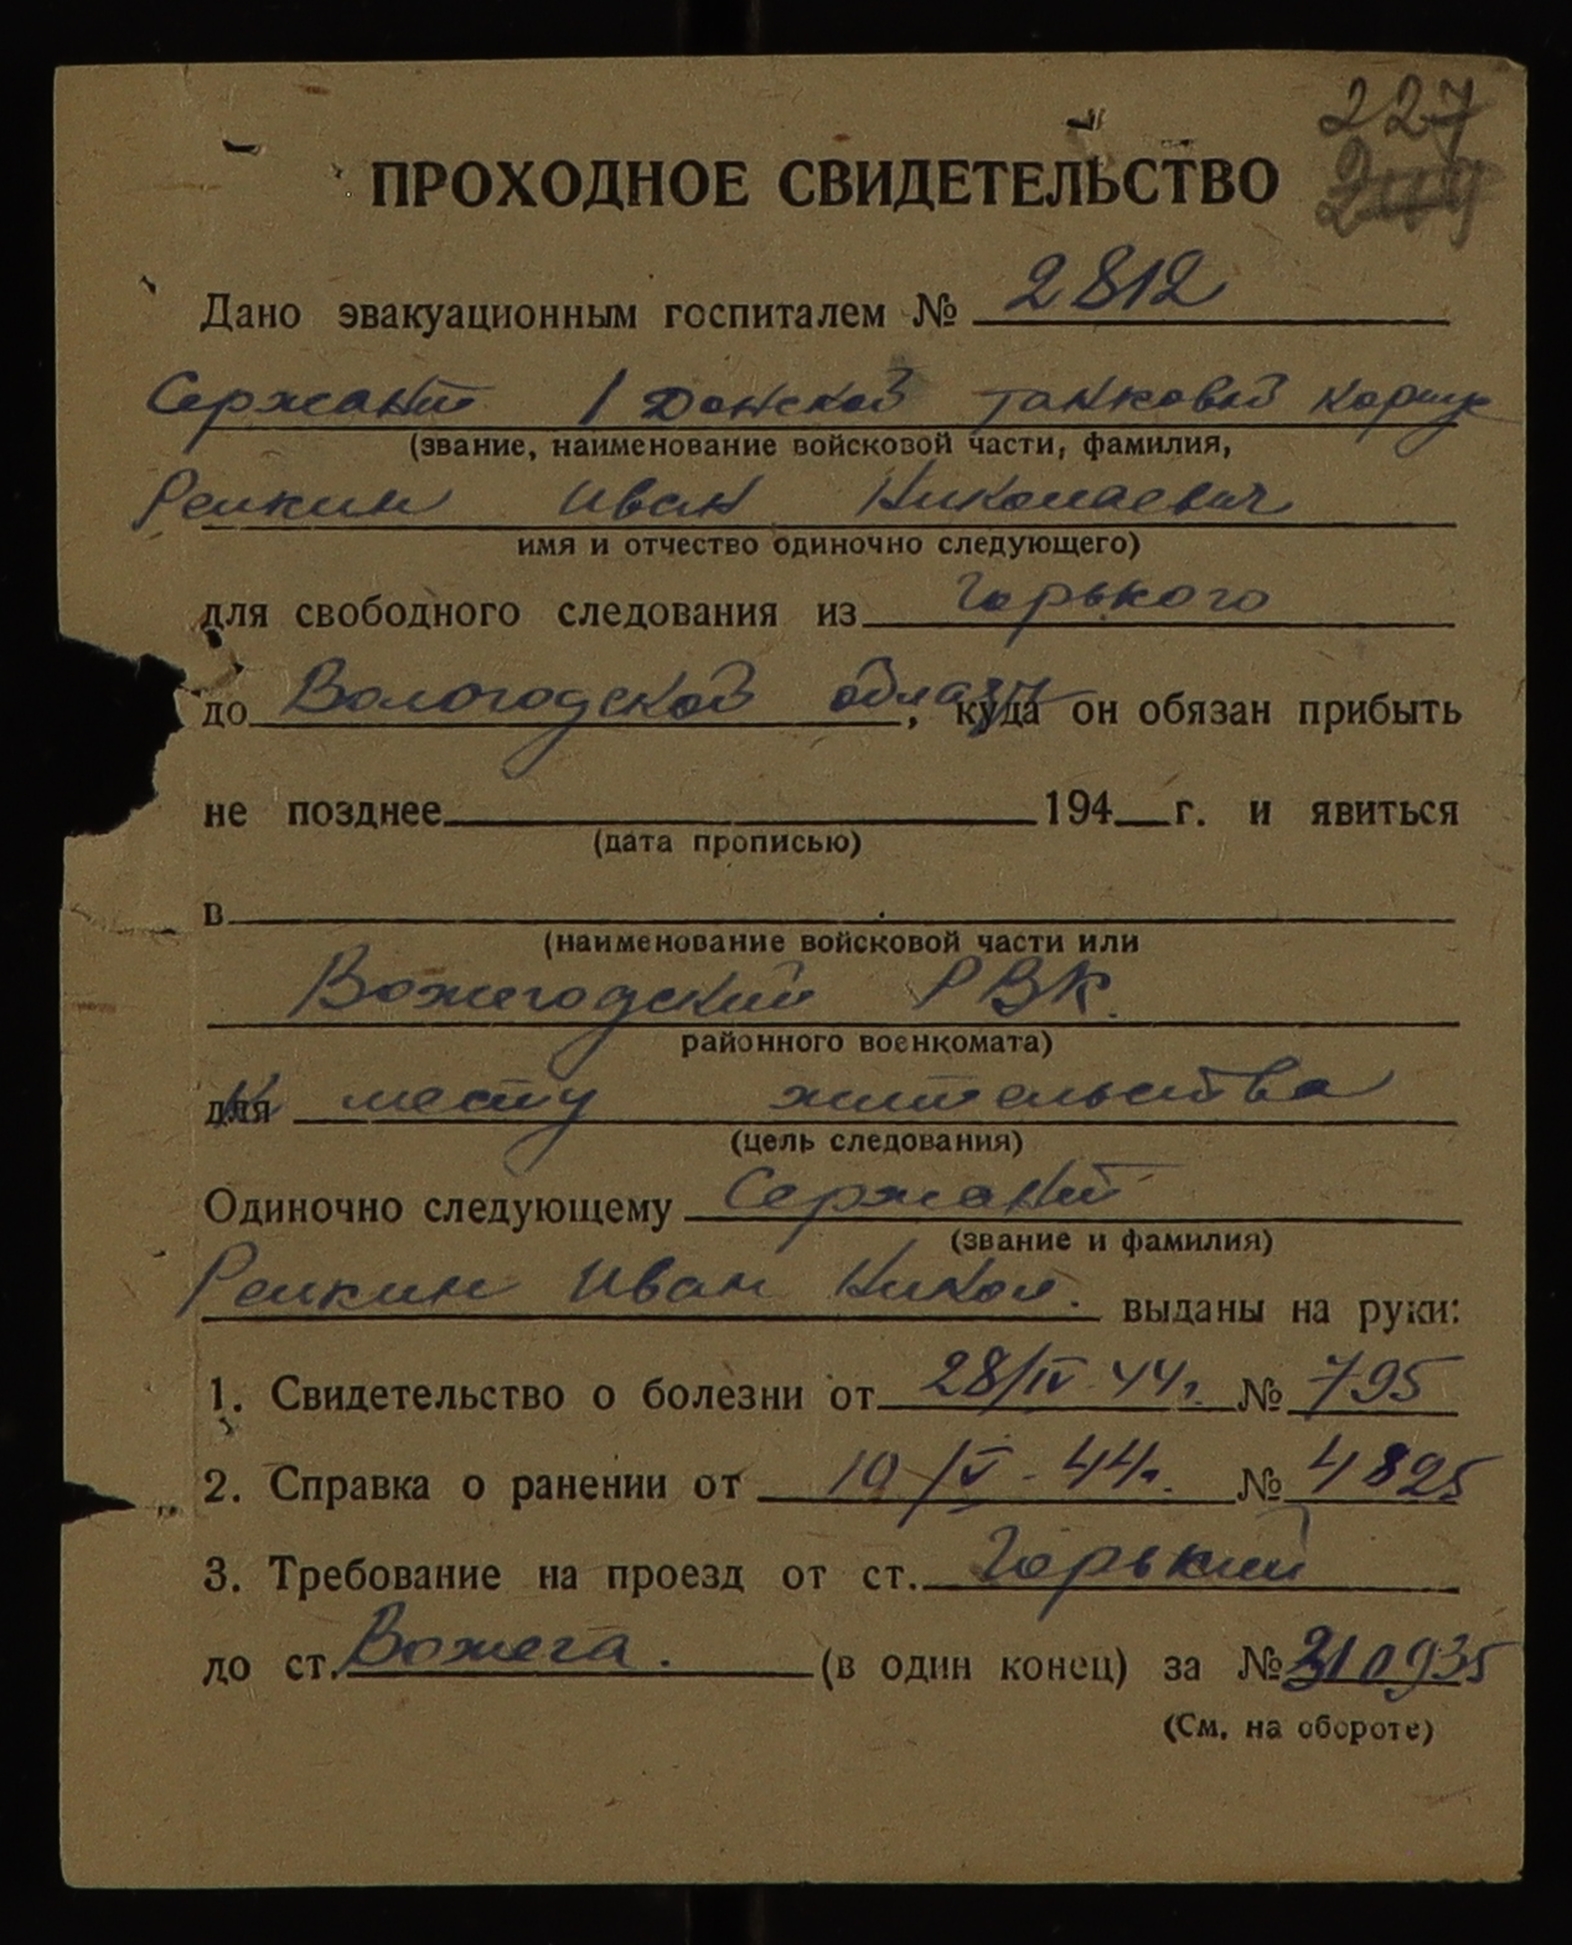 227
249
ПРОХОДНОЕ СВИДЕТЕЛЬСТВО
Дано эвакуационным госпиталем № 2812
Сержант 1 Донской танковый корпус
(звание, наименование войсковой части, фамилия,
Репкин Иван Николаевич
имя и отчество одиночно следующего)
для свободного следования из Горького
до Вологодской области, куда он обязан прибыть
не позднее 194 г. и явиться
(дата прописью)
в
(наименование войсковой части или
Вожегодский РВК.
районного военкомата)
для К месту жительства
(цель следования)
Одиночно следующему Сержант
(звание и фамилия)
Репкин Иван Никол. выданы на руки:
1. Свидетельство о болезни от 28/IV-44г. № 795
2. Справка о ранении от 10/V-44г. № 4825
3. Требование на проезд от ст. Горький
до ст. Вожега. (в один конец) за № 310935
(См. на обороте)